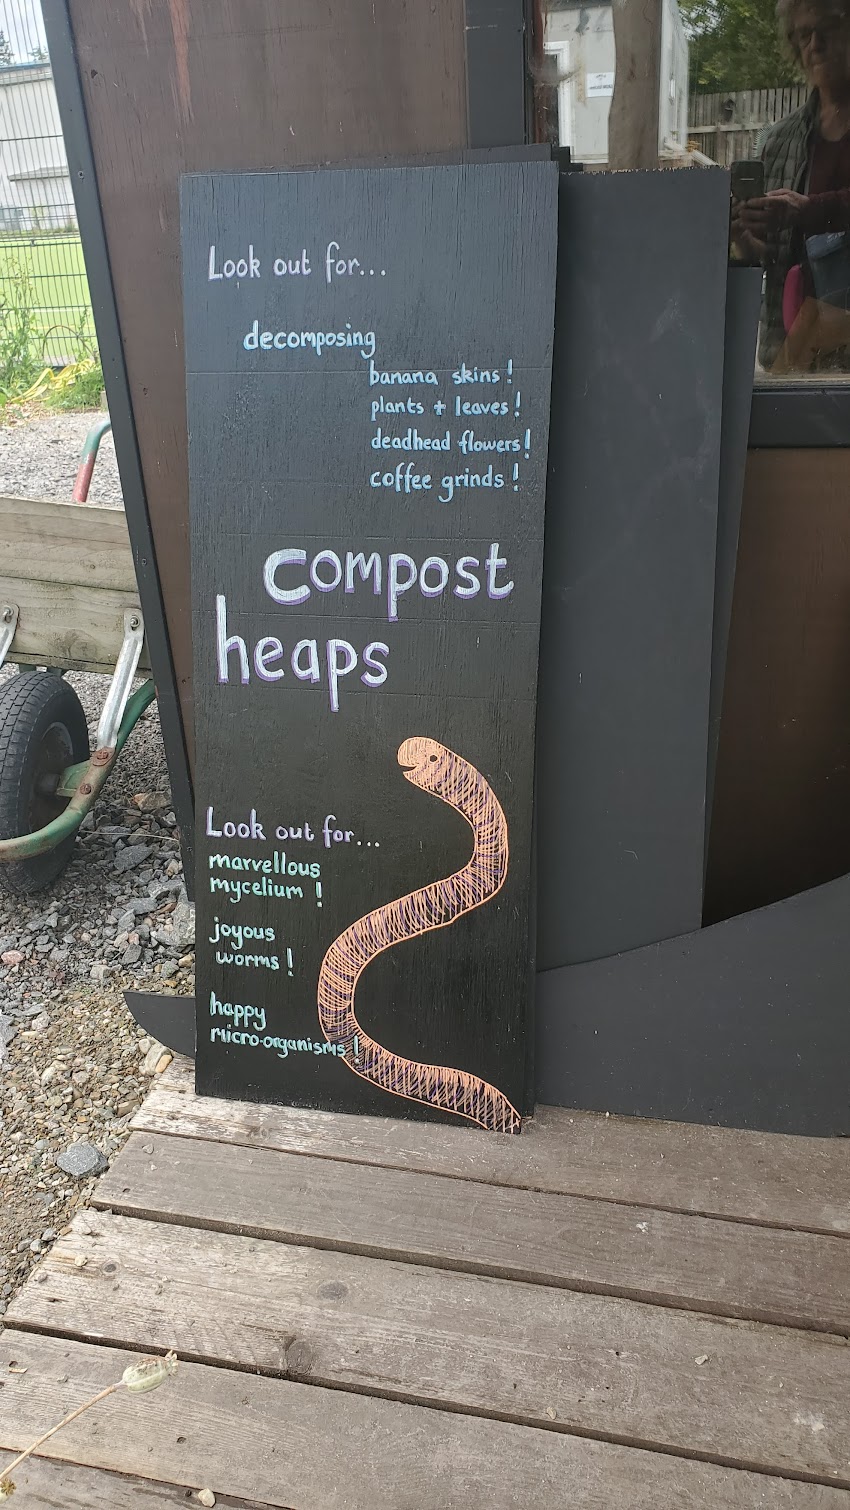 Look out for...
decomposing
banana skins!
plants + leaves!
deadhead flowers!
coffee grinds!
compost
heaps
Look out for...
marvellous
mycelium!
joyous
worms!
happy
micro-organisms!